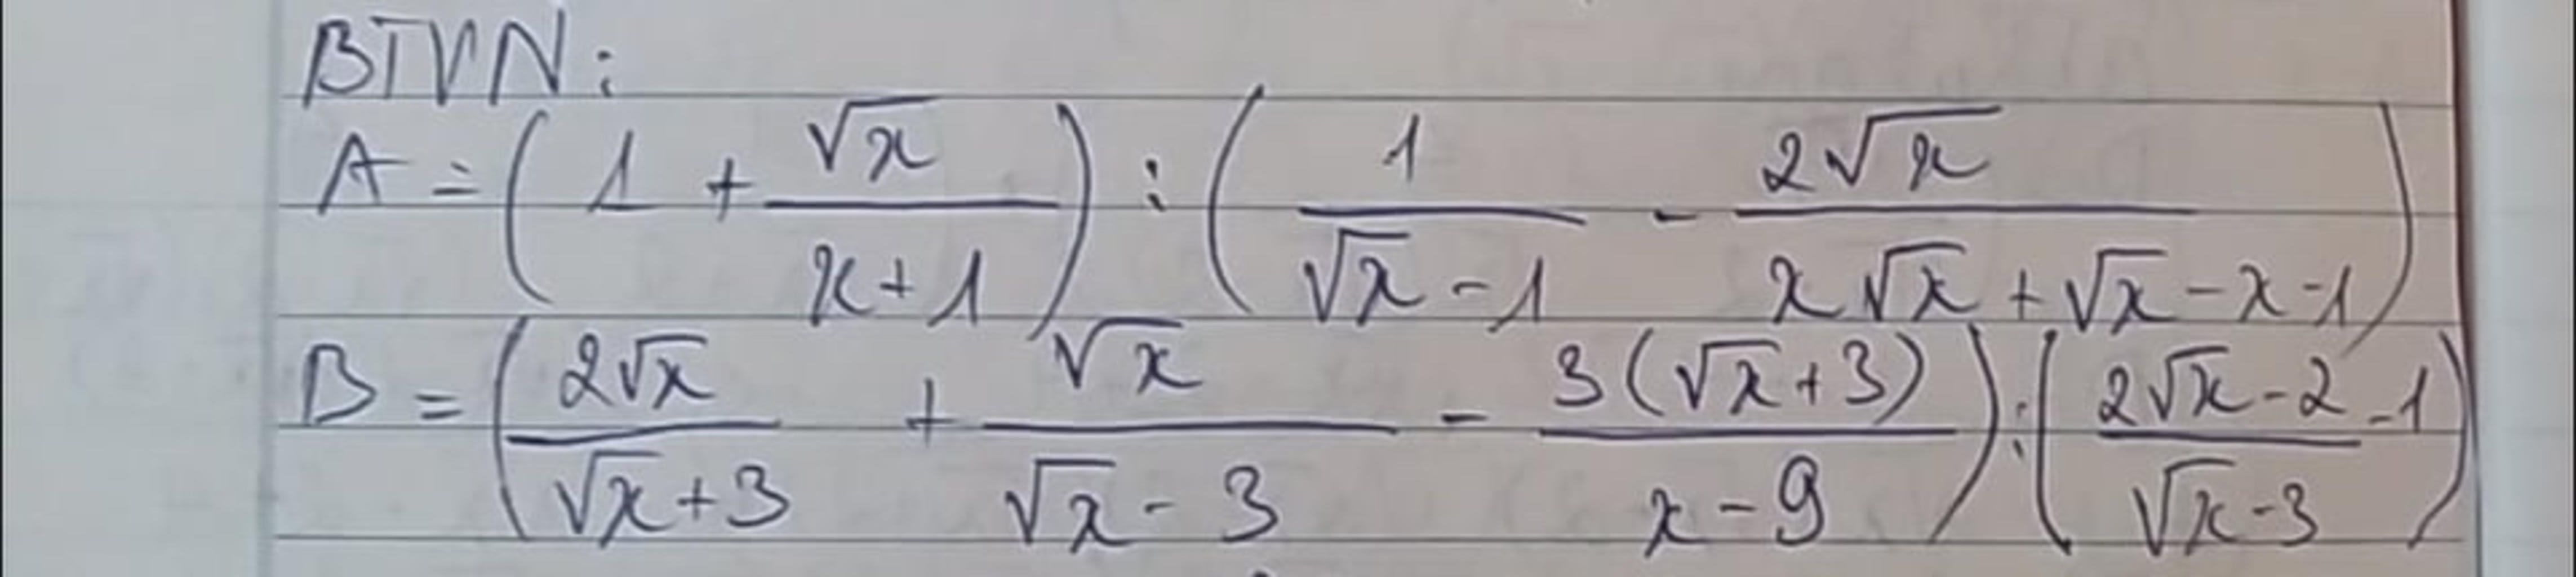 BTVN:
A = ( 1 + √x / (x + 1) ) : ( 1 / (√x - 1) - 2√x / (x√x + √x - x - 1) )
B = ( 2√x / (√x + 3) + √x / (√x - 3) - 3(√x + 3) / (x - 9) ) : ( (2√x - 2) / (√x - 3) - 1 )